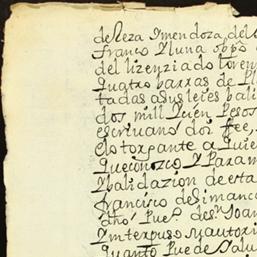 deReza Ymendoza del
franco Y luna obpo
del lizenziado loren
quatro barras de Pl
tadas asus leies bali
dos mill Y cien Pesos
escriuano doi fee,
elotorgante a quie
que conozco Y Para m
Y balidazion de esta
francisco de Simanca
dho Pue des Joan
Y interpuso su autori
quanto Puede Salu